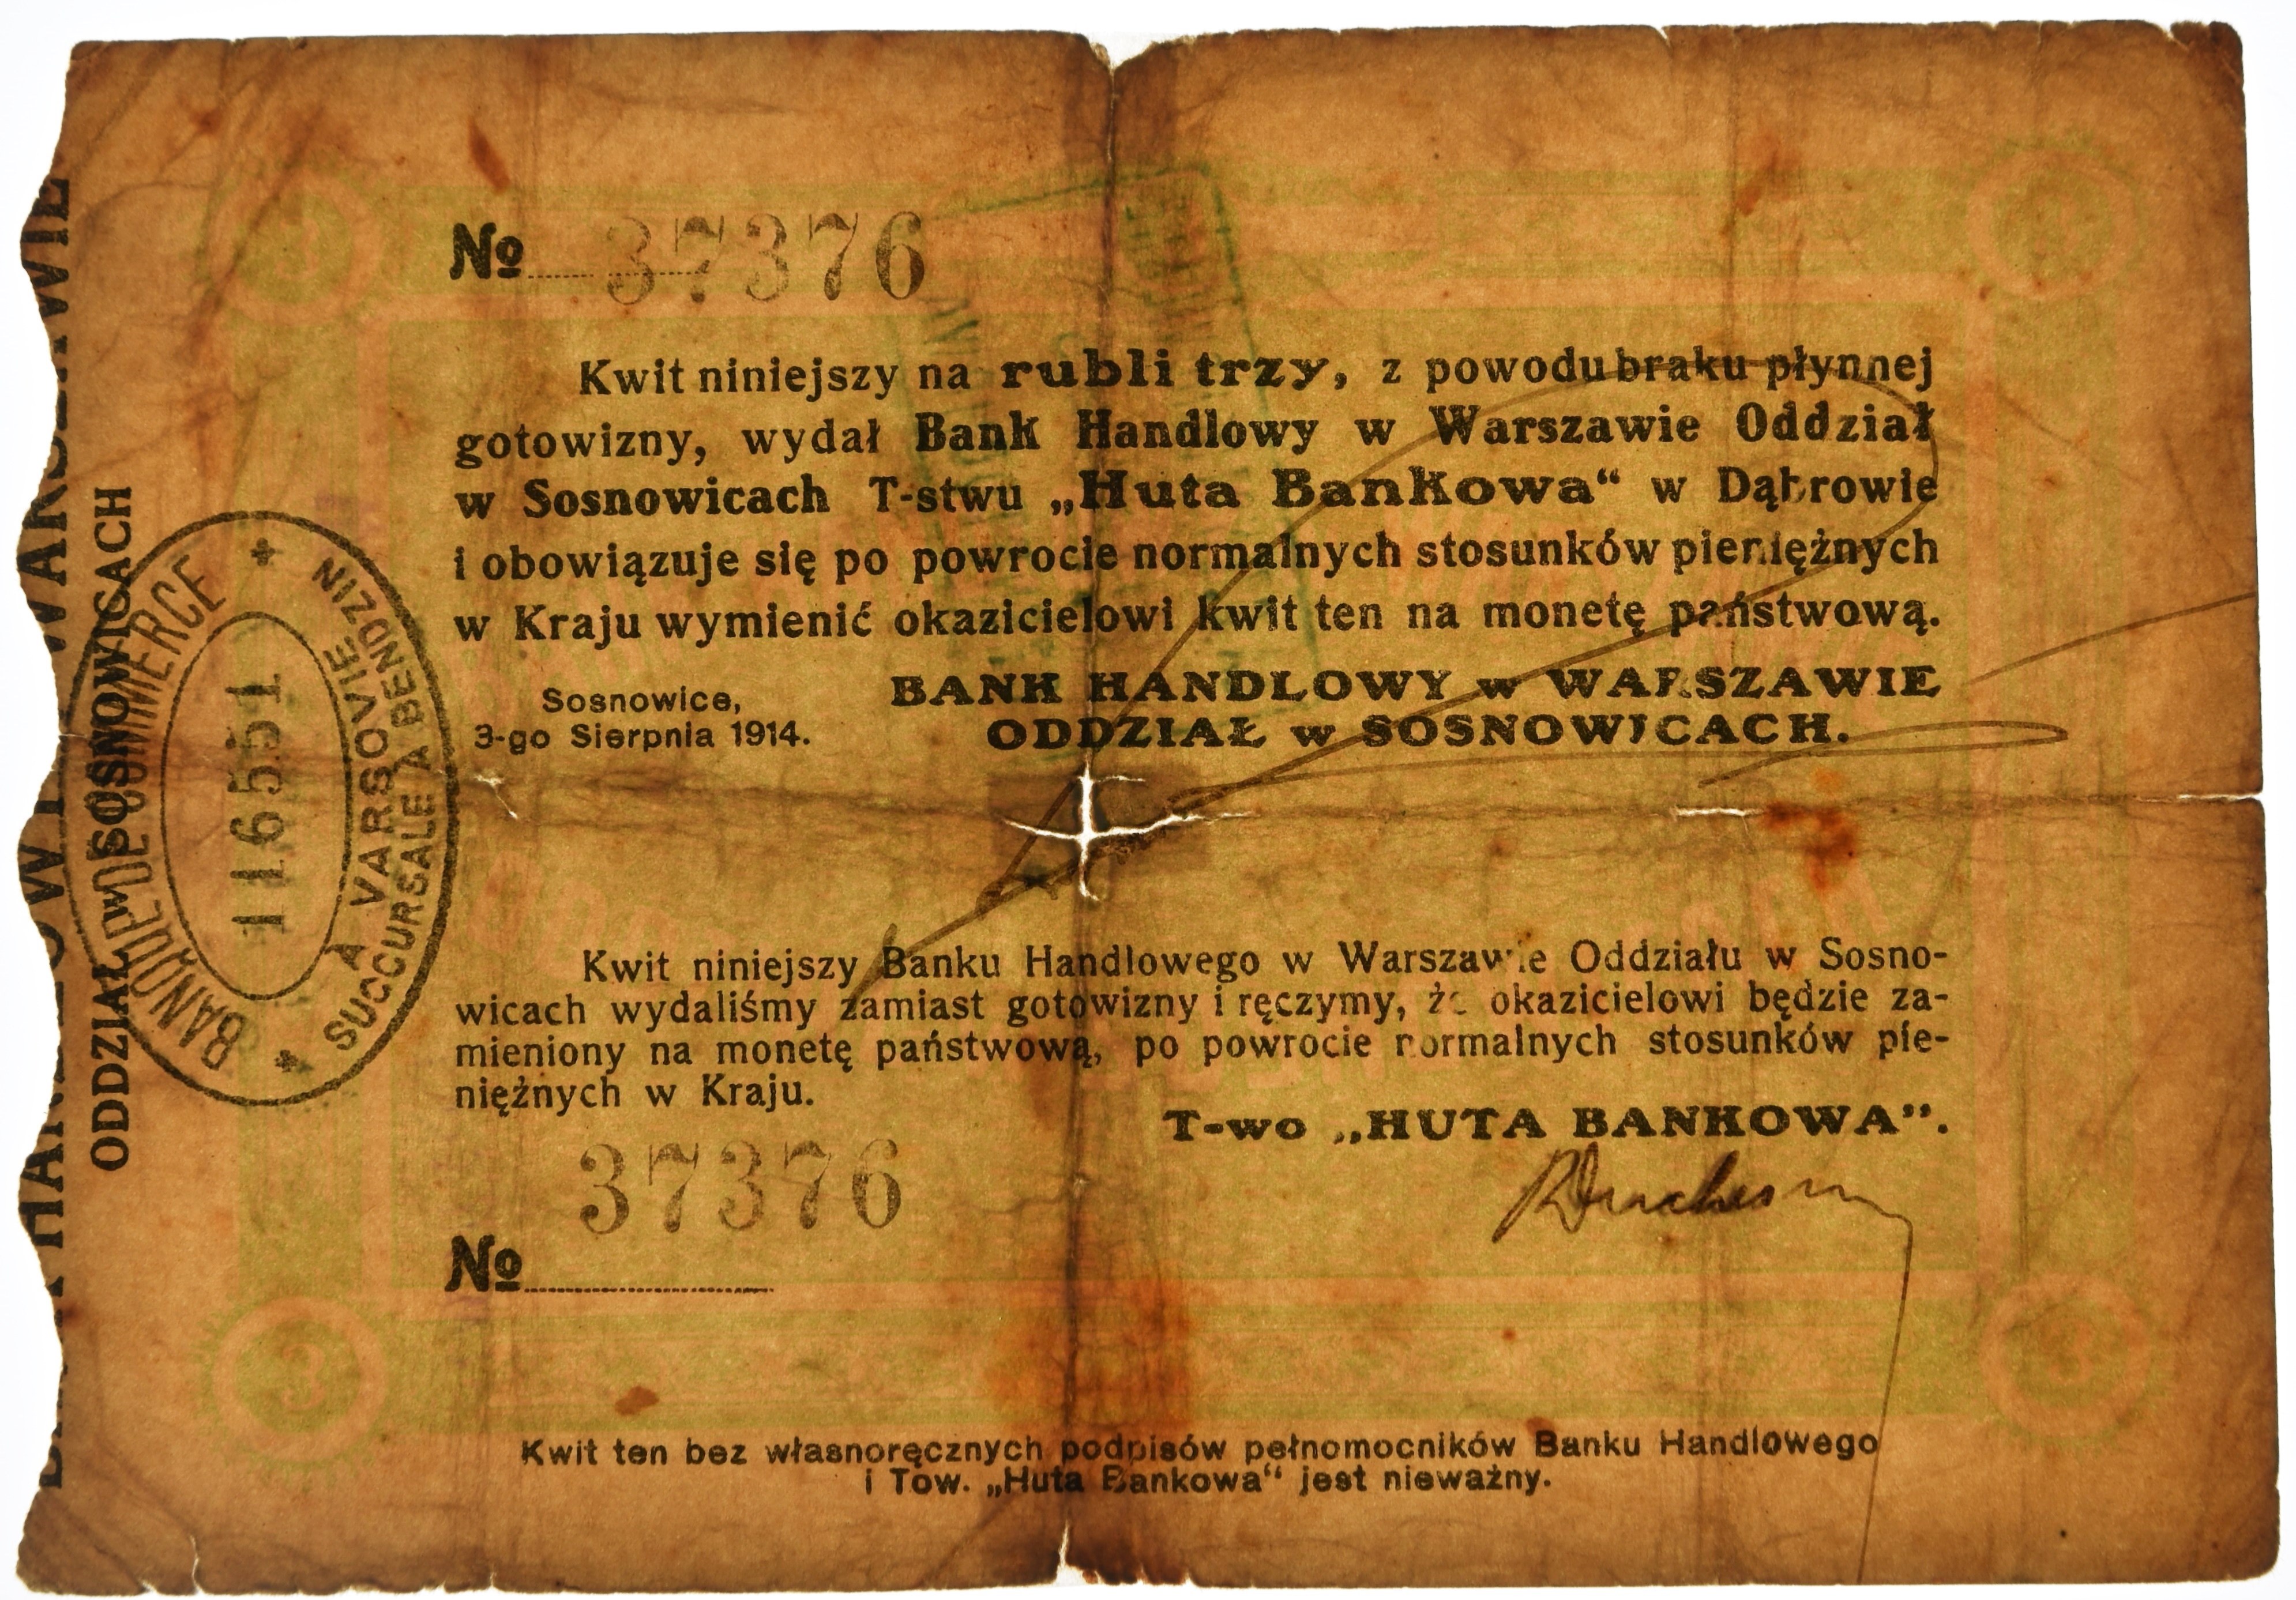 № 37376
Kwit niniejszy na rubli trzy, z powodu braku płynnej
gotowizny, wydał Bank Handlowy w Warszawie Oddział
w Sosnowicach T-stwu „Huta Bankowa“ w Dąbrowie
i obowiązuje się po powrocie normalnych stosunków pieniężnych
w Kraju wymienić okazicielowi kwit ten na monetę państwową.
Sosnowice,
3-go Sierpnia 1914.
BANK HANDLOWY w WARSZAWIE
ODDZIAŁ w SOSNOWICACH.
Kwit niniejszy Banku Handlowego w Warszawie Oddziału w Sosno-
wicach wydaliśmy zamiast gotowizny i ręczymy, że okazicielowi będzie za-
mieniony na monetę państwową, po powrocie normalnych stosunków pie-
niężnych w Kraju.
T-wo „HUTA BANKOWA”.
37376
№
Kwit ten bez własnoręcznych podpisów pełnomocników Banku Handlowego
i Tow. „Huta Bankowa“ jest nieważny.
ODDZIAŁ w SOSNOWICACH
BANQUE DE COMMERCE
À VARSOVIE
SUCCURSALE A BENDZIN
116551
3
3
3
3